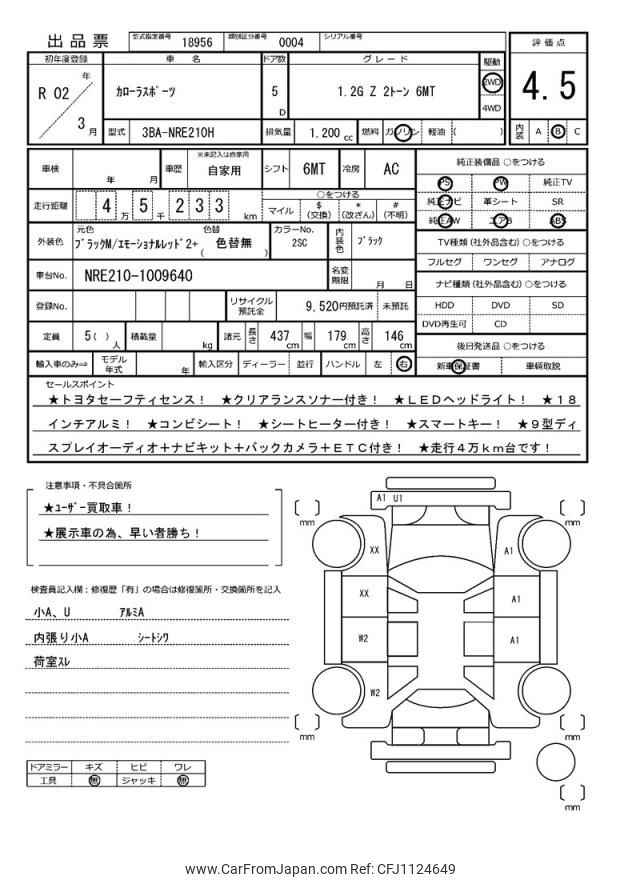 出品票
型式指定番号 18956 類別区分番号 0004 シリアル番号
評価点
4.5
初年度登録 車名 ドア数 グレード 駆動
R 02 年 3 月
カローラスポーツ
5 D
1.2G Z 2トーン 6MT
2WD
4WD
型式 3BA-NRE210H 排気量 1,200 cc 燃料 ガソリン 軽油 ( )
内装 A B C
車検 年 月 車歴 ※未記入は自家用 自家用 シフト 6MT 冷房 AC
走行距離 4 万 5 千 2 3 3 km
○をつける
マイル $ (交換) * (改ざん) # (不明)
外装色 元色 色替 カラーNo. 内装色 ブラック
ブラックM/エモーショナルレッド2+ ( 色替無 ) 2SC
車台No. NRE210-1009640 名変期限 月 日
登録No. リサイクル預託金 9,520円預託済 未預託
定員 5( ) 人 積載量 kg 諸元 長さ 437 cm 幅 179 cm 高さ 146 cm
輸入車のみ⇒ モデル年式 年 輸入区分 ディーラー 並行 ハンドル 左 右
純正装備品 ○をつける
PS PW 純正TV
純正ナビ 革シート SR
純正AW エアB ABS
TV種類 (社外品含む) ○をつける
フルセグ ワンセグ アナログ
ナビ種類 (社外品含む) ○をつける
HDD DVD SD
DVD再生可 CD
後日発送品 ○をつける
新車保証書 車輌取説
セールスポイント
★トヨタセーフティセンス! ★クリアランスソナー付き! ★LEDヘッドライト! ★18
インチアルミ! ★コンビシート! ★シートヒーター付き! ★スマートキー! ★9型ディ
スプレイオーディオ+ナビキット+バックカメラ+ETC付き! ★走行4万km台です!
注意事項・不具合箇所
★ユーザー買取車!
★展示車の為、早い者勝ち!
検査員記入欄:修復歴「有」の場合は修復箇所・交換箇所を記入
小A、U アルミA
内張り小A シートシワ
荷室スレ
ドアミラー キズ ヒビ ワレ
工具 無 ジャッキ 無
A1 U1
mm
mm
XX
A1
XX
A1
W2
A1
W2
mm
mm
mm
www.CarFromJapan.com Ref: CFJ1124649